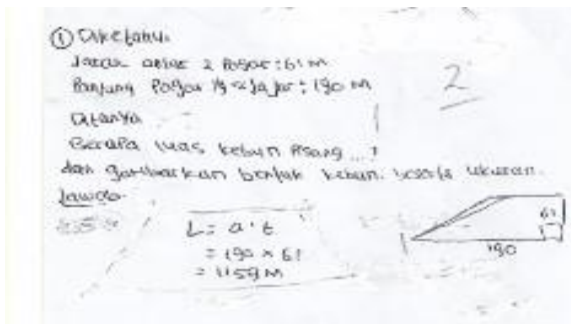 ① Diketahui
Jarak antar 2 Pagar : 61 m
Panjang Pagar yg sejajar : 190 m
2
Ditanya
Berapa luas kebun Pisang ...?
dan gambarkan bentuk kebun beserta ukuran.
Jawab
L = a . t
= 190 x 61
= 1159 M
61
190